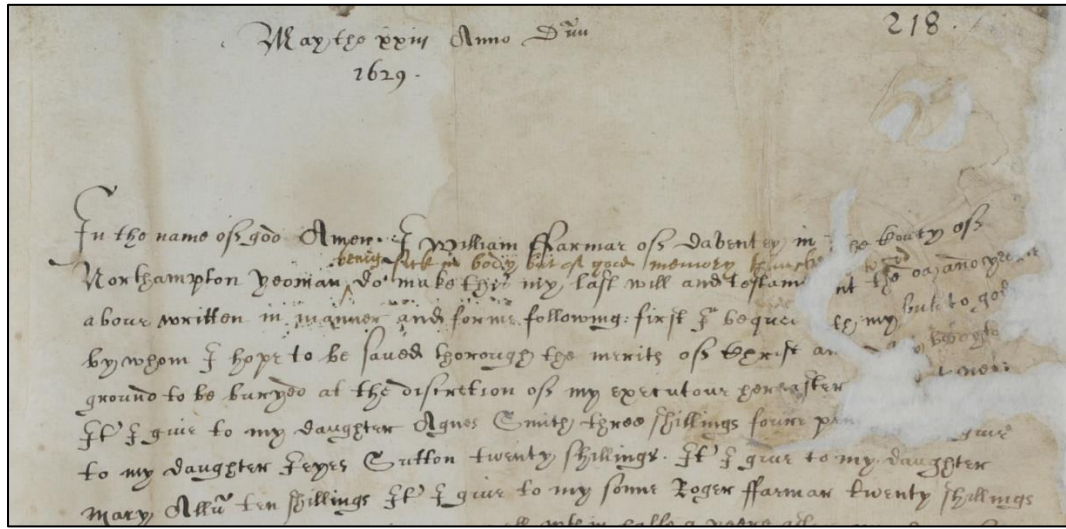 May the xxiii Anno Dm̃
218.
1629.
In the name off god Amen. I William ffarmar off daventey in he Couty off
being sick in body but of good memory
Northampton yeoman do make this my last will and testam nt the day and yeare
above written in manner and forme following: first I beque th my but to god
by whom I hope to be saved thorough the merits off Christ an
ground to be buryed at the discretion off my executour hereafter
It̃ I give to my daughter Agnes Smith three shillings foure pen give
to my daughter Sutton twenty shillings. It̃ I give to my daughter
Mary Allũ ten shillings It̃ I give to my sonne Roger ffarmar twenty shillings